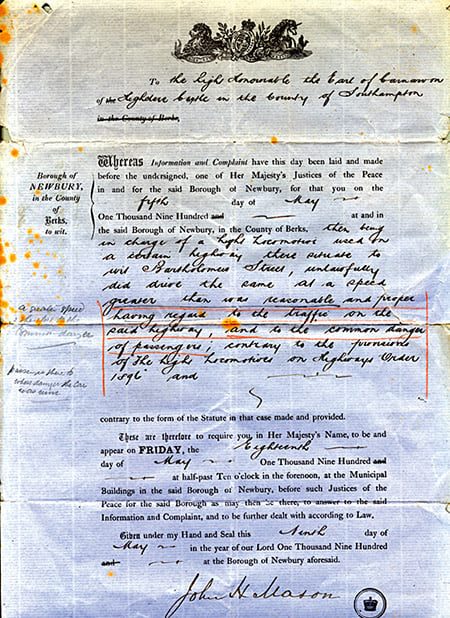 To the Right Honourable the Earl of Carnarvon
of the Highclere Castle in the County of Southampton
in the County of Berks,
Borough of
NEWBURY,
in the County
of
Berks,
to wit.
Whereas Information and Complaint have this day been laid and made
before the undersigned, one of Her Majesty's Justices of the Peace
in and for the said Borough of Newbury, for that you on the
fifth day of May
One Thousand Nine Hundred and at and in
the said Borough of Newbury, in the County of Berks, then being
in charge of a light locomotive used on
a certain highway there situate to
wit Bartholomew Street, unlawfully
did drive the same at a speed
greater than was reasonable and proper
having regard to the traffic on the
said highway, and to the common danger
of passengers, contrary to the provisions
of the Light Locomotives on Highways Order
1896 and
a greater speed
passengers
whose danger
contrary to the form of the Statute in that case made and provided.
These are therefore to require you, in Her Majesty's Name, to be and
appear on FRIDAY, the Eighteenth
day of May One Thousand Nine Hundred and
at half-past Ten o'clock in the forenoon, at the Municipal
Buildings in the said Borough of Newbury, before such Justices of the
Peace for the said Borough as may then be there, to answer to the said
Information and Complaint, and to be further dealt with according to Law.
Given under my Hand and Seal this Ninth day of
May in the year of our Lord One Thousand Nine Hundred
and at the Borough of Newbury aforesaid.
John H Mason